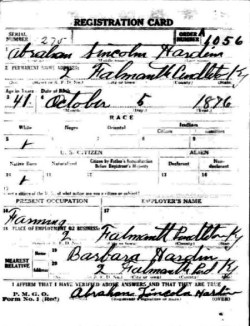 REGISTRATION CARD
SERIAL NUMBER 275 ORDER NUMBER A 1056
Abraham Lincoln Hardin
2 PERMANENT HOME ADDRESS:
2 Falmouth Pendleton Ky
Age in Years Date of Birth
41 October 5 1876
RACE
White Negro Oriental Indian
U. S. CITIZEN ALIEN
Native Born Naturalized Citizen by Father's Naturalization Before Registrant's Majority Declarant Non-declarant
If not a citizen of the U. S., of what nation are you a citizen or subject?
PRESENT OCCUPATION EMPLOYER'S NAME
Farming
PLACE OF EMPLOYMENT OR BUSINESS:
2 Falmouth Pendleton Ky
NEAREST RELATIVE Name Barbara Hardin
Address 2 Falmouth Ky
I AFFIRM THAT I HAVE VERIFIED ABOVE ANSWERS AND THAT THEY ARE TRUE
P. M. G. O.
Form No. 1 (Red) Abraham Lincoln Hardin